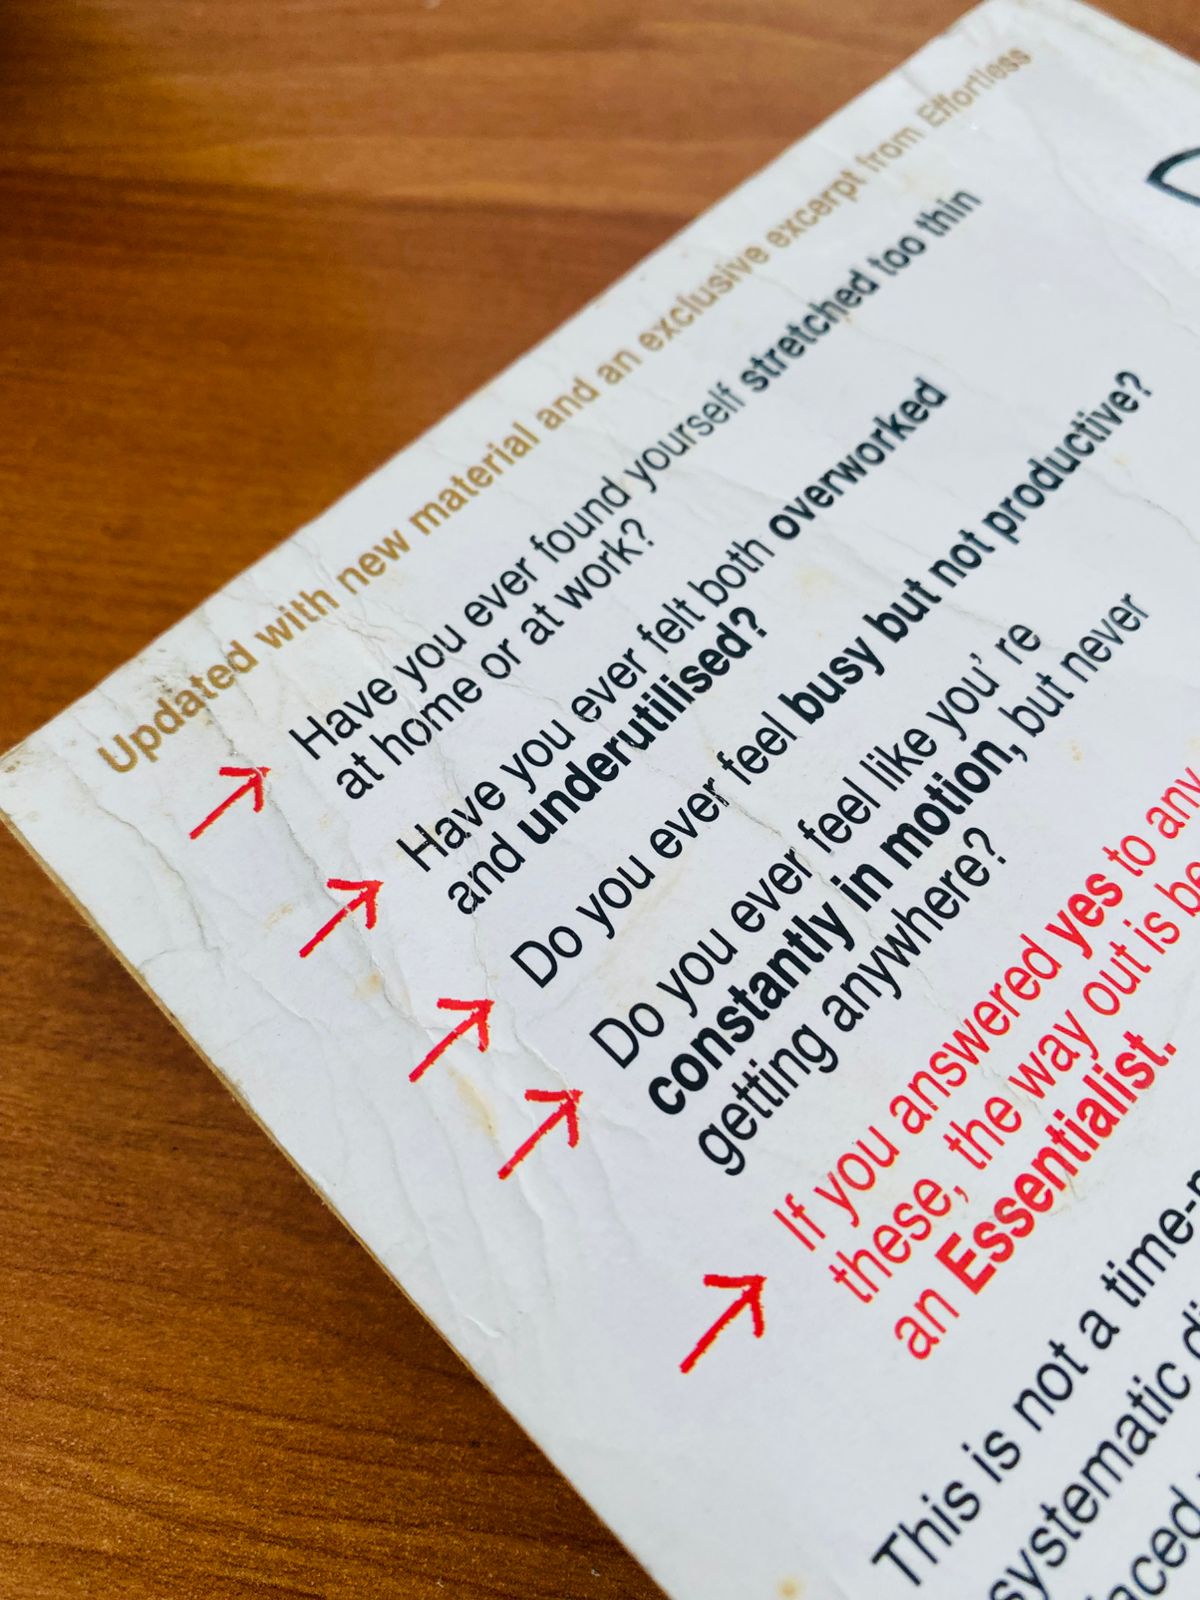 Updated with new material and an exclusive excerpt from Effortless
Have you ever found yourself stretched too thin
at home or at work?
Have you ever felt both overworked
and underutilised?
Do you ever feel busy but not productive?
Do you ever feel like you' re
constantly in motion, but never
getting anywhere?
If you answered yes to any
these, the way out is be
an Essentialist.
This is not a time-
systematic